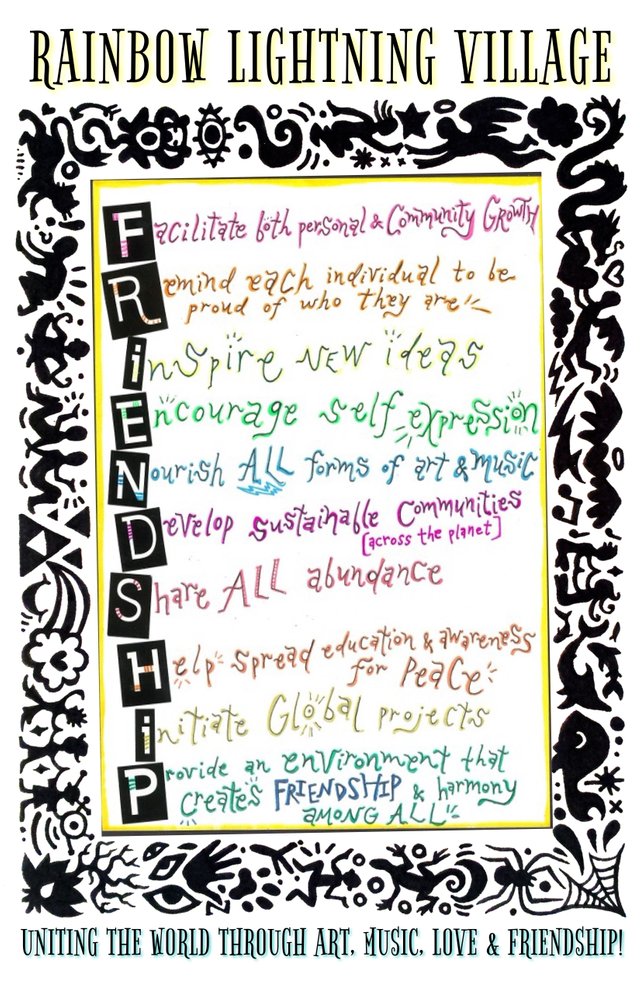 RAINBOW LIGHTNING VILLAGE
Facilitate both personal & Community GROWTH
Remind each individual to be
proud of who they are
inspire NEW ideas
Encourage self expression
Nourish ALL forms of art & music
Develop sustainable Communities
[across the planet]
Share ALL abundance
Help spread education & awareness
for Peace
initiate Global projects
Provide an environment that
creates FRIENDSHIP & harmony
AMONG ALL
UNITING THE WORLD THROUGH ART, MUSIC, LOVE & FRIENDSHIP!